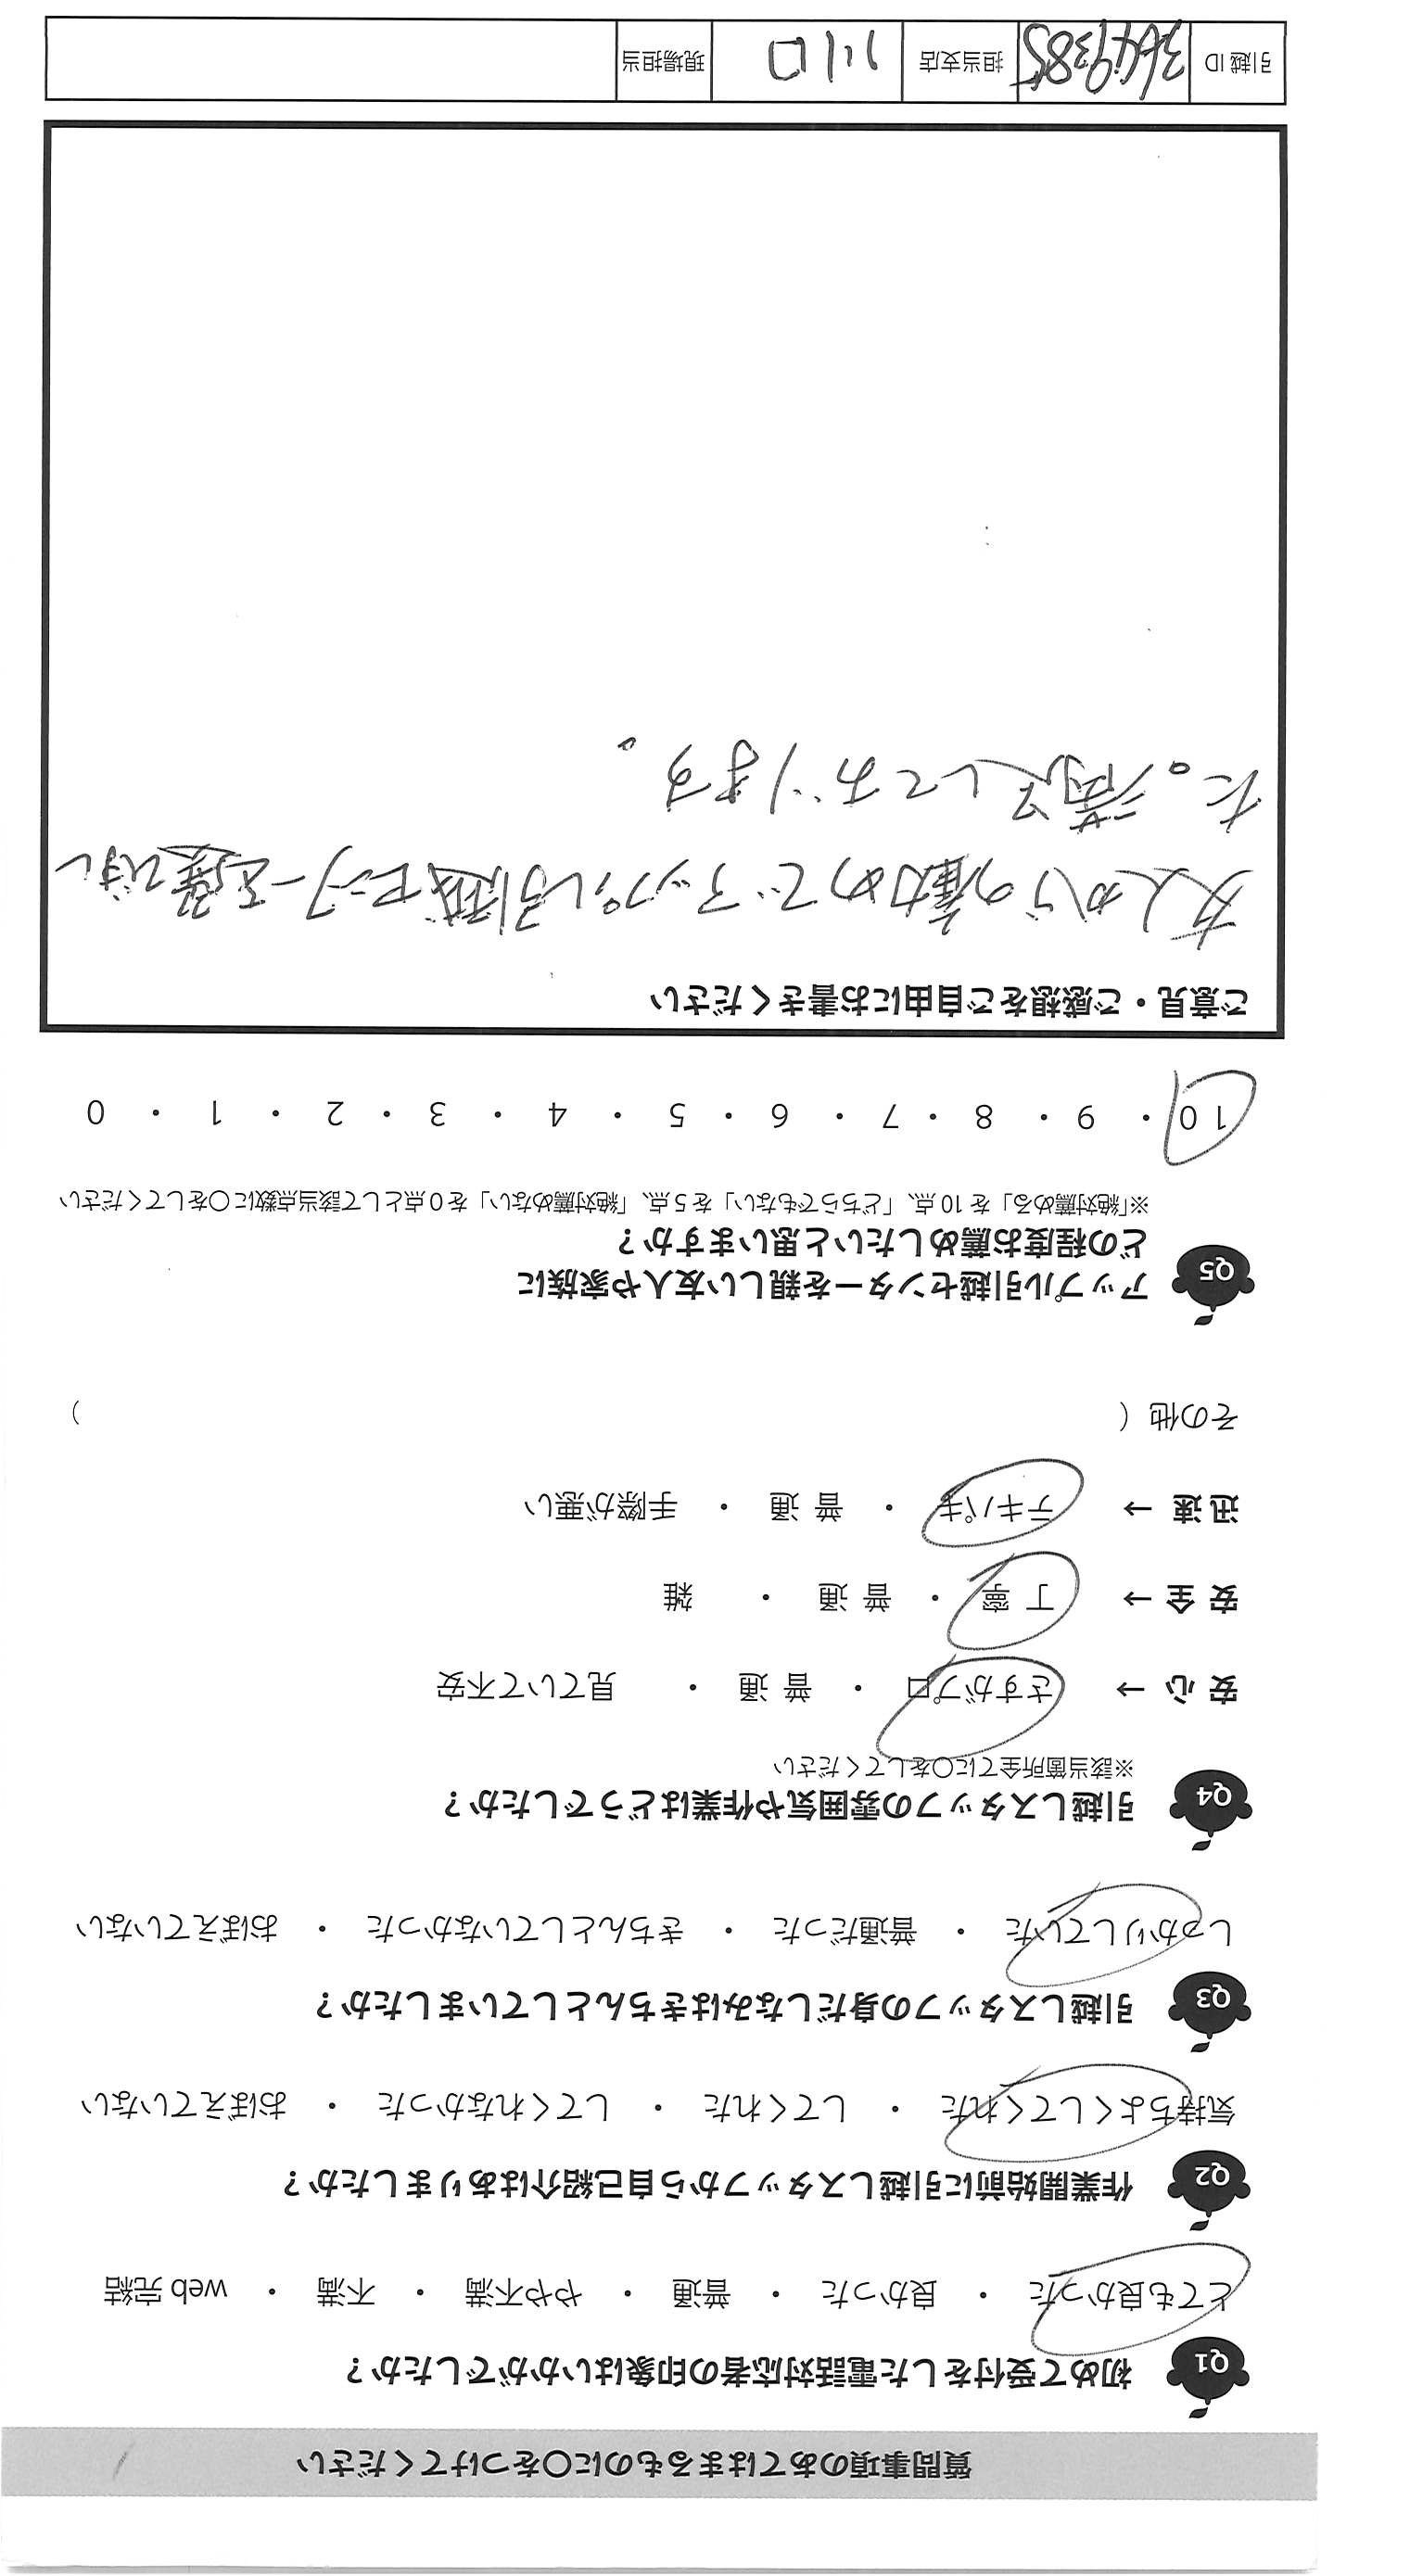 質問事項のあてはまるものに〇をつけてください
Q1 初めて受付をした電話対応者の印象はいかがでしたか？
とても良かった ・ 良かった ・ 普通 ・ やや不満 ・ 不満 ・ web 完結
Q2 作業開始前に引越しスタッフから自己紹介はありましたか？
気持ちよくしてくれた ・ してくれた ・ してくれなかった ・ おぼえていない
Q3 引越しスタッフの身だしなみはきちんとしていましたか？
しっかりしていた ・ 普通だった ・ きちんとしていなかった ・ おぼえていない
Q4 引越しスタッフの雰囲気や作業はどうでしたか？
※該当箇所全てに〇をしてください
安 心 → さすがプロ ・ 普 通 ・ 見ていて不安
安 全 → 丁 寧 ・ 普 通 ・ 雑
迅 速 → テキパキ ・ 普 通 ・ 手際が悪い
その他（ ）
Q5 アップル引越センターを親しい友人や家族に
どの程度お薦めしたいと思いますか？
※「絶対薦める」を 10 点、「どちらでもない」を 5 点、「絶対薦めない」を 0 点として該当点数に〇をしてください
10 ・ 9 ・ 8 ・ 7 ・ 6 ・ 5 ・ 4 ・ 3 ・ 2 ・ 1 ・ 0
ご意見・ご感想をご自由にお書きください
友人からの薦めでアップル引越センターを選びまし
た。満足しております。
引越 ID 3649385 担当支店 川口 現場担当